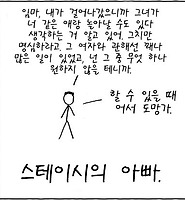 임마, 내가 걸어나갔으니까 그녀가
너 같은 애랑 놀아날 수도 있다
생각하는 거 알고 있어. 그치만
명심하라고. 그 여자와 관해선 꽤나
많은 일이 있었고, 넌 그 중 무엇 하나
원하지 않을 테니까.
할 수 있을 때
어서 도망가.
스테이시의 아빠.